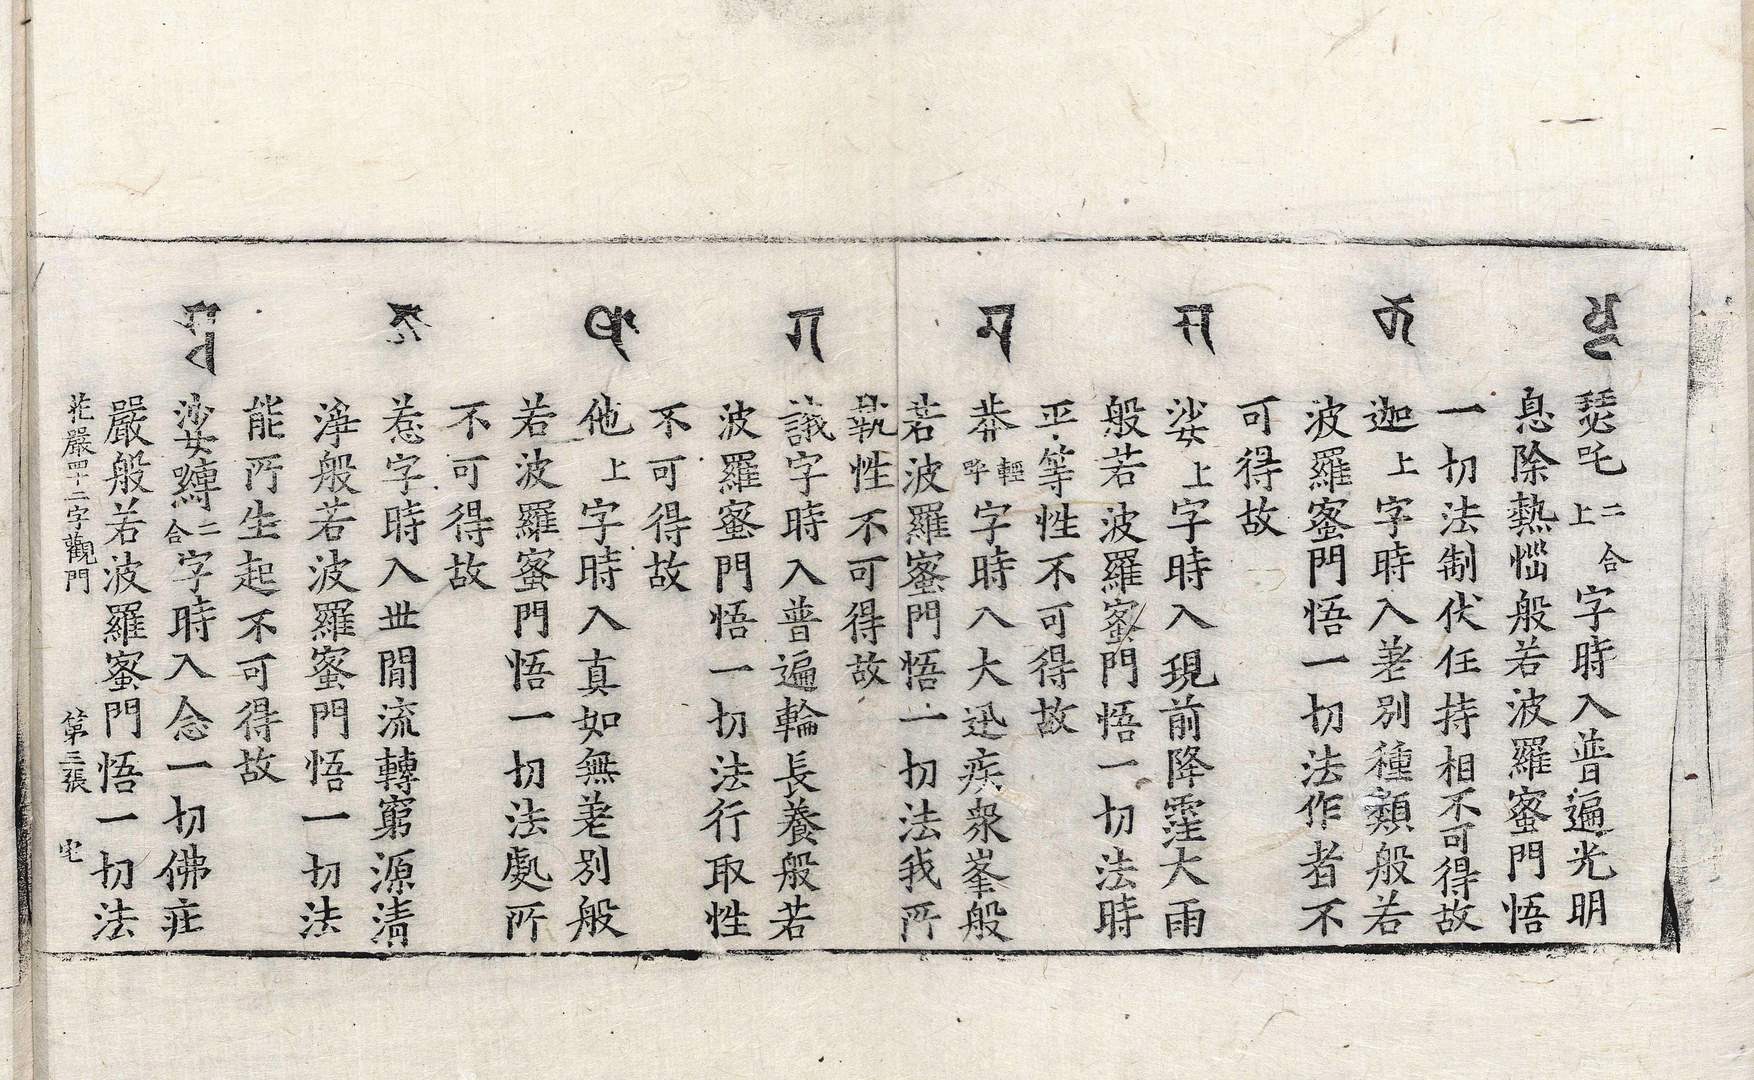 𑖬𑖿𑖘 瑟吒二合上字時入普遍光明
息除熱惱般若波羅蜜門悟
一切法制伏任持相不可得故
𑖎 迦上字時入差別種類般若
波羅蜜門悟一切法作者不
可得故
𑖭 娑上字時入現前降霔大雨
般若波羅蜜門悟一切法時
平等性不可得故
𑖦 莽輕呼字時入大迅疾衆峯般
若波羅蜜門悟一切法我所
執性不可得故
𑖐 誐字時入普遍輪長養般若
波羅蜜門悟一切法行取性
不可得故
𑖞 他上字時入真如無差別般
若波羅蜜門悟一切法處所
不可得故
𑖕 惹字時入世間流轉窮源清
淨般若波羅蜜門悟一切法
能所生起不可得故
𑖭𑖿𑖪 娑嚩二合字時入念一切佛莊
嚴般若波羅蜜門悟一切法
花嚴四十二字觀門 第三張 宅